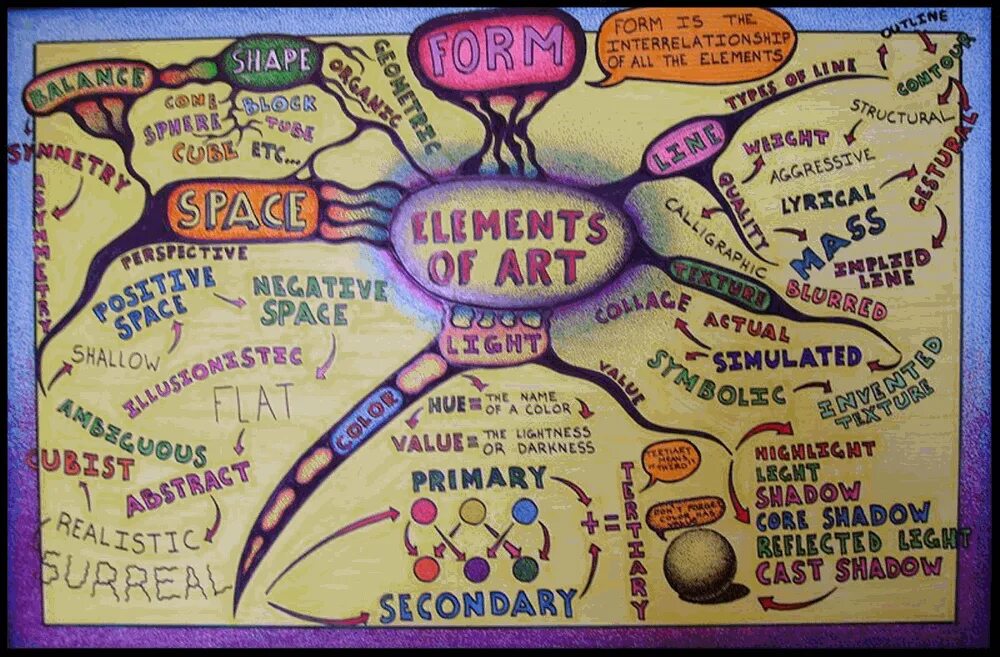 FORM
FORM IS THE
INTERRELATIONSHIP
OF ALL THE ELEMENTS
BALANCE
SHAPE
SYMMETRY
ASYMMETRY
GEOMETRIC
ORGANIC
CONE
BLOCK
SPHERE
TUBE
CUBE ETC...
SPACE
ELEMENTS
OF ART
PERSPECTIVE
POSITIVE
SPACE
NEGATIVE
SPACE
SHALLOW
ILLUSIONISTIC
FLAT
AMBIGUOUS
CUBIST
ABSTRACT
REALISTIC
SURREAL
LINE
TYPES OF LINE
OUTLINE
CONTOUR
STRUCTURAL
GESTURAL
WEIGHT
AGGRESSIVE
QUALITY
LYRICAL
CALLIGRAPHIC
MASS
IMPLIED
LINE
BLURRED
TEXTURE
COLLAGE
ACTUAL
SIMULATED
SYMBOLIC
INVENTED
TEXTURE
LIGHT
COLOR
VALUE
HUE = THE NAME
OF A COLOR
VALUE = THE LIGHTNESS
OR DARKNESS
PRIMARY
SECONDARY
+ =
TERTIARY
TERTIARY
MEANS
"THIRD"!
DON'T FORGET
COLOR HAS
HIGHLIGHT
LIGHT
SHADOW
CORE SHADOW
REFLECTED LIGHT
CAST SHADOW